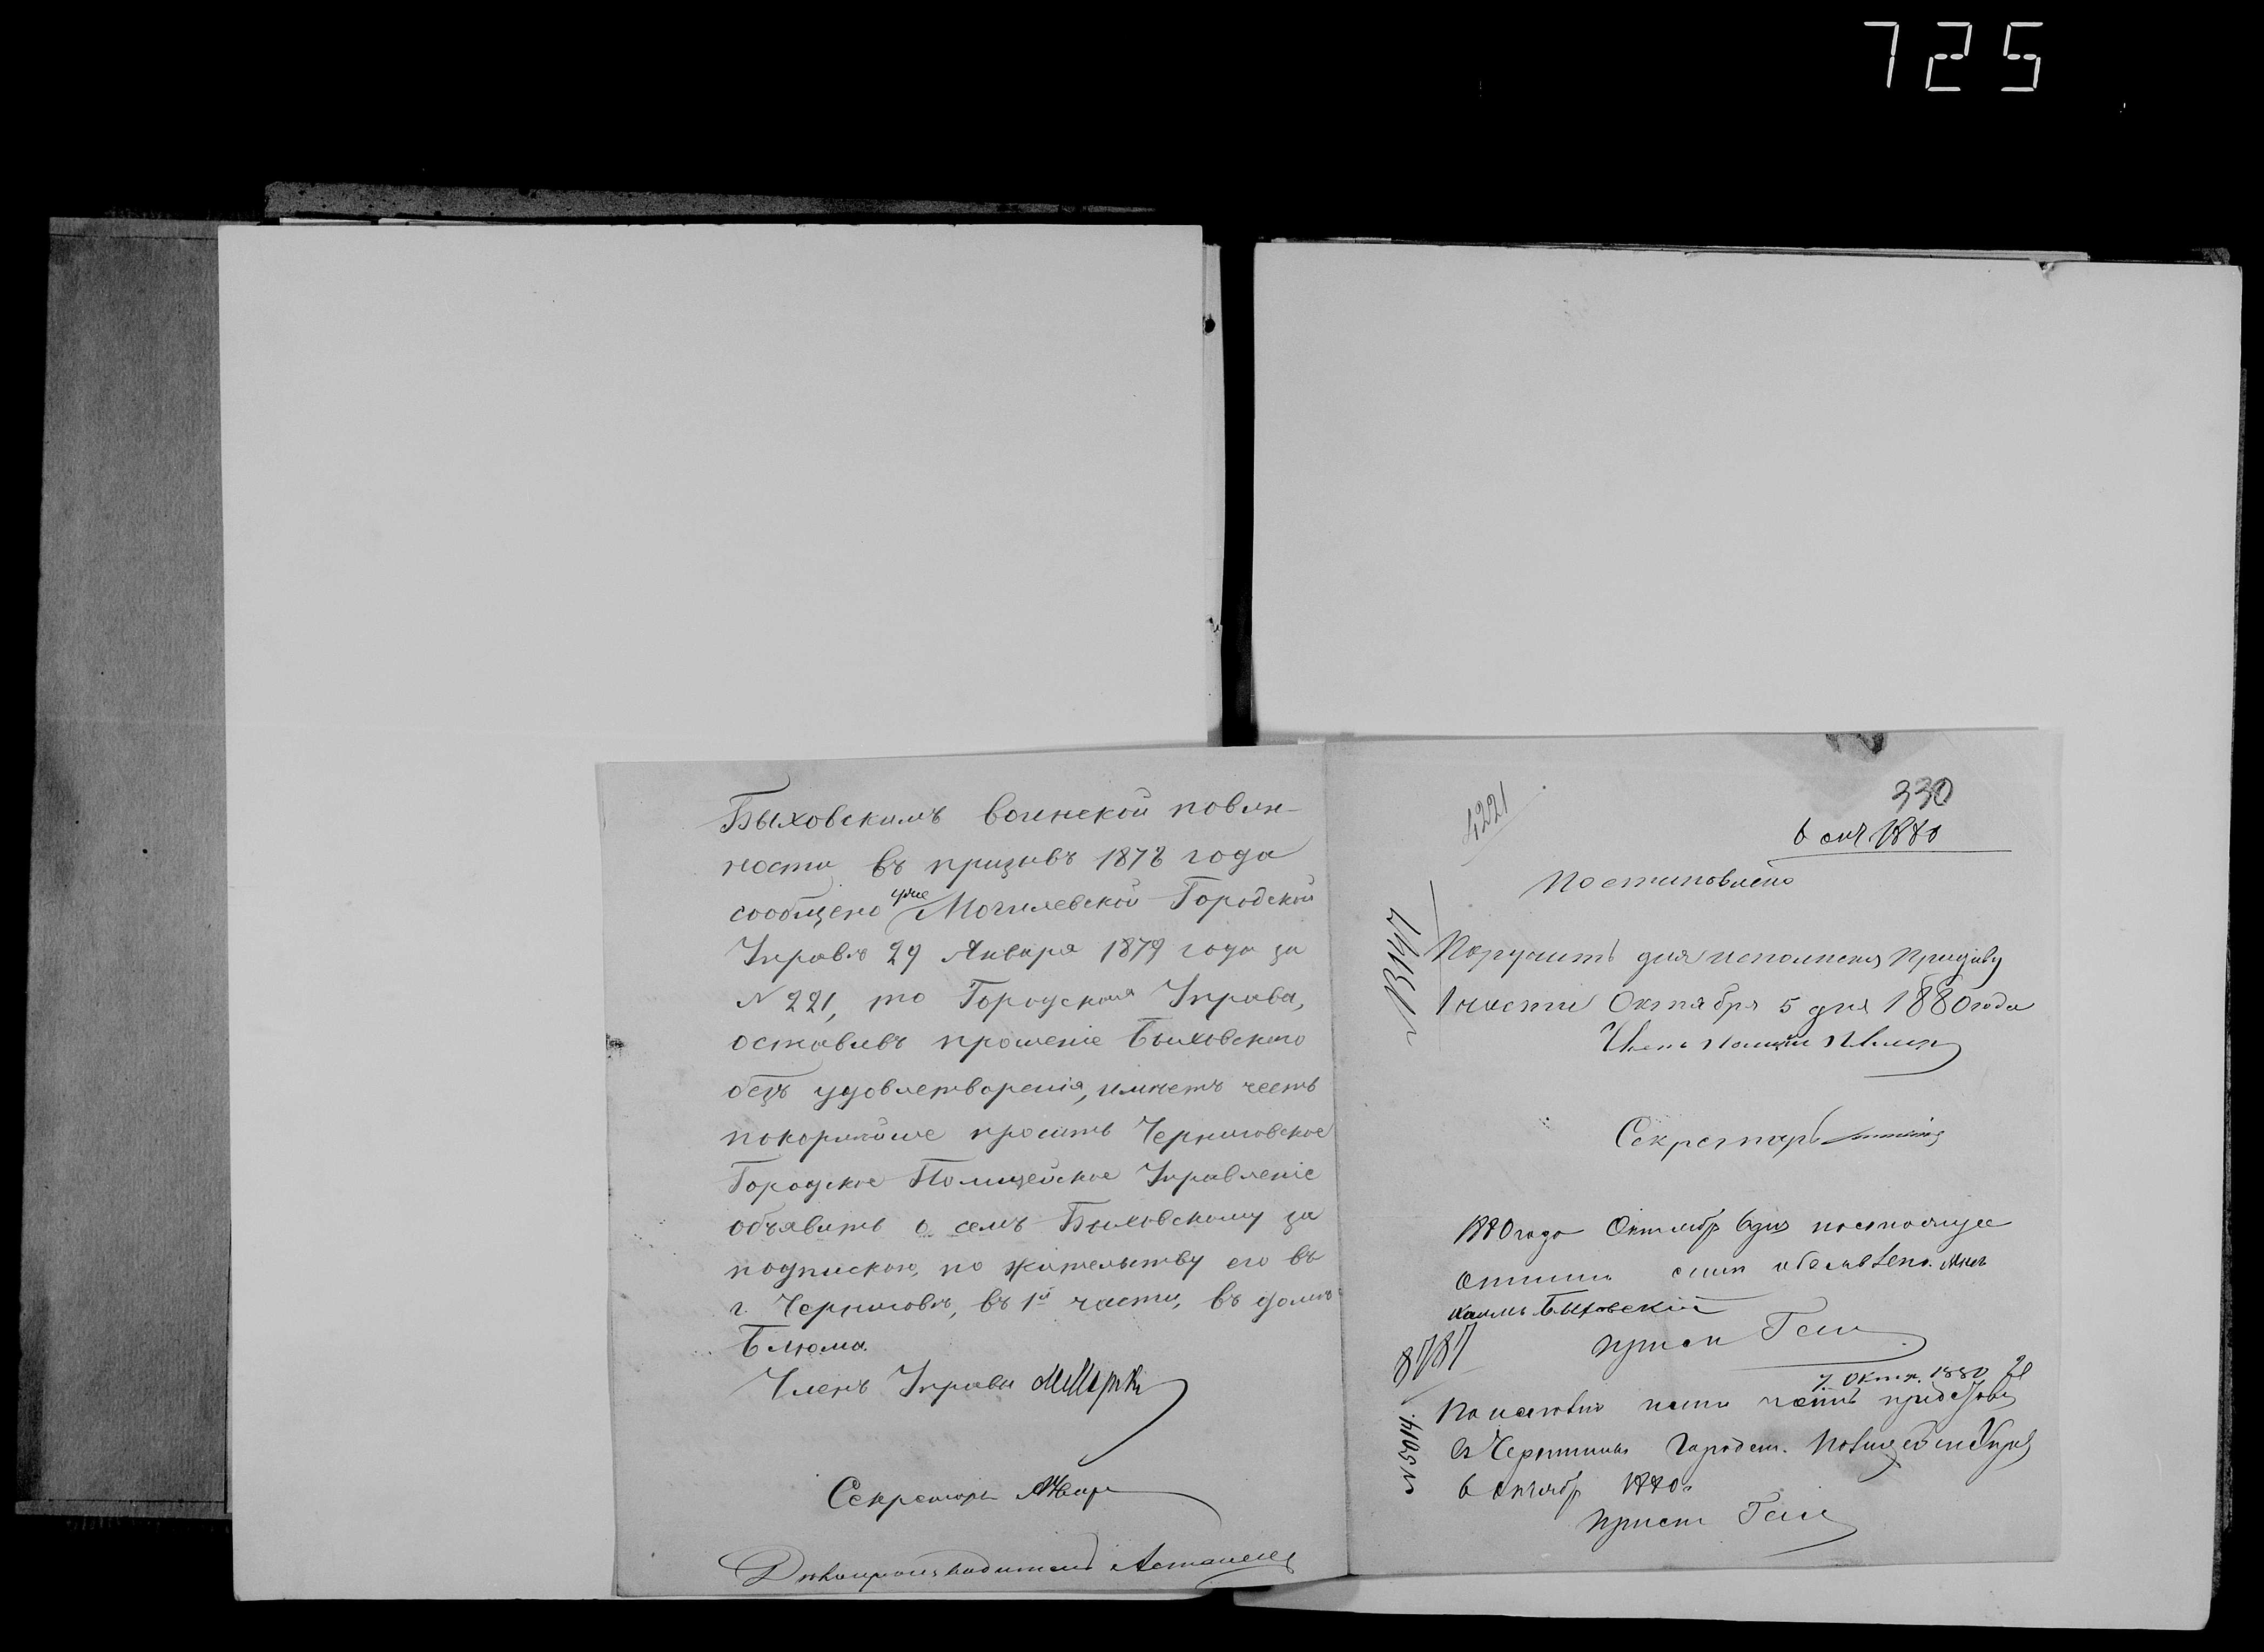 725
Быховскимъ воинской повин-
ности въ призывъ 1878 года
сообщено уже Могилевской Городской
Управѣ 29 Января 1879 года за
№ 221, то Городская Управа,
оставивъ прошеніе Быховского
безъ удовлетворенія, имѣетъ честь
покорнѣйше просить Черниговское
Городское Полицейское Управленіе
объявить о семъ Быховскому за
подпискою, по жительству его въ
г. Черниговѣ, въ 1й части, въ домѣ
Блюма.
Членъ Управы
Секретарь
Дѣлопроизводитель
330
4221
6 окт 1880
Постановлено
Поручить для исполненія Приставу
1 части Октября 5 дня 1880 года
Членъ Полиціи
Секретарь
1880 года Октября 6 дня настоящее
объявлено. Мнѣ
Хаимъ Быховскій
Приставъ
8787
7 Октя. 1880
части представ
въ Городск. Полицейск Упр
№ 5014.
6 Октябр 1880 г
Приставъ